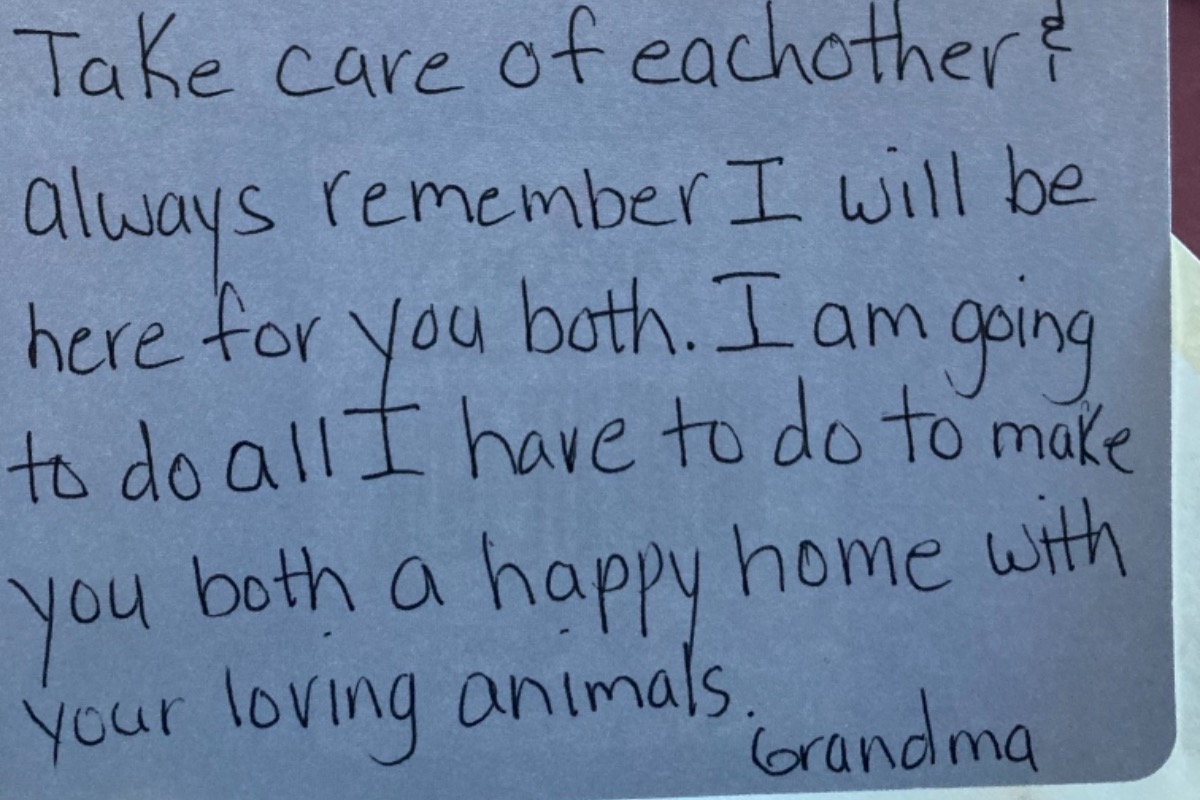 Take care of eachother &
always remember I will be
here for you both. I am going
to do all I have to do to make
you both a happy home with
your loving animals.
Grandma